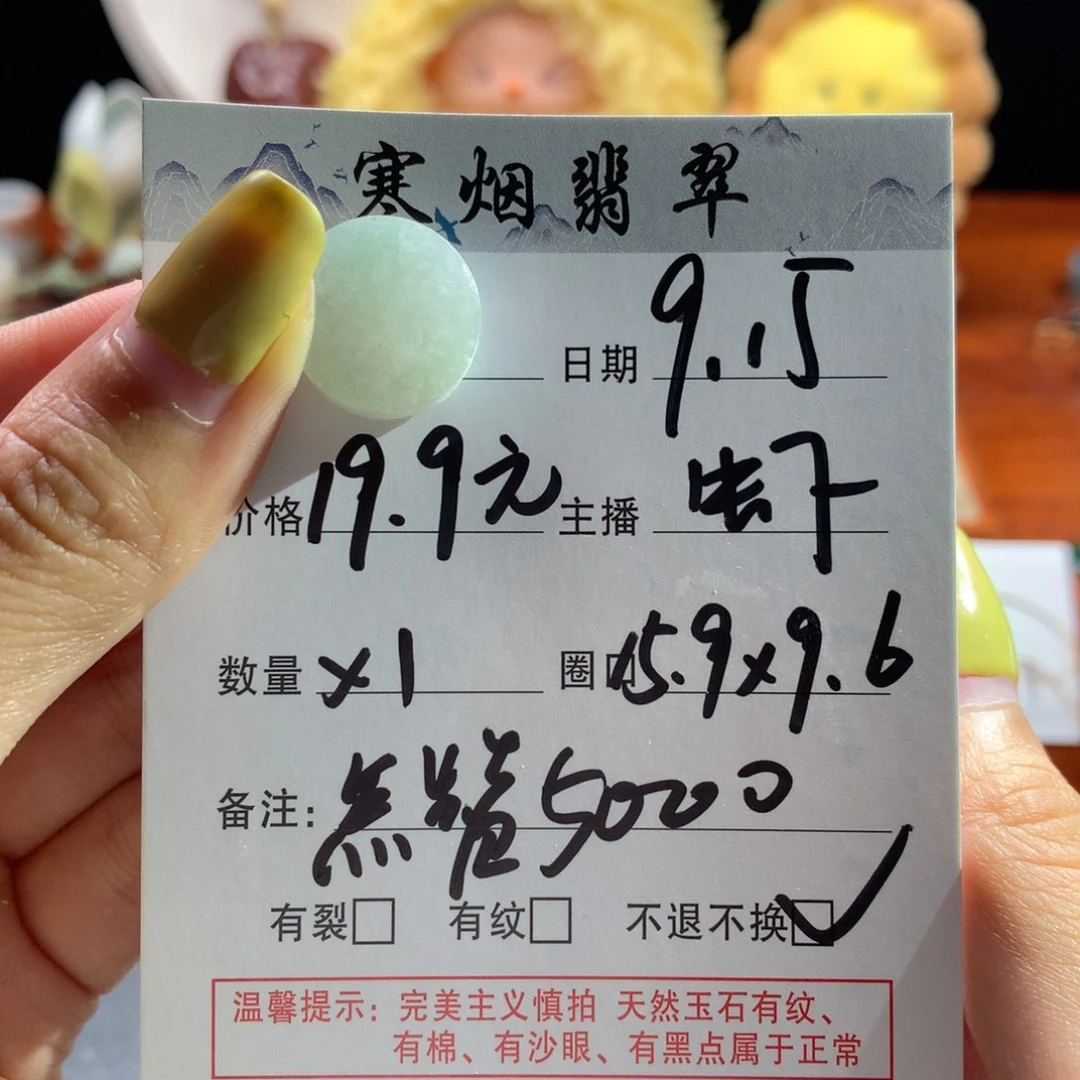 寒烟翡翠
日期 9.15
价格 19.9元 主播
数量 x1 圈口 15.9x9.6
备注: 点赞50000
有裂 有纹 不退不换
温馨提示: 完美主义慎拍 天然玉石有纹、
有棉、有沙眼、有黑点属于正常